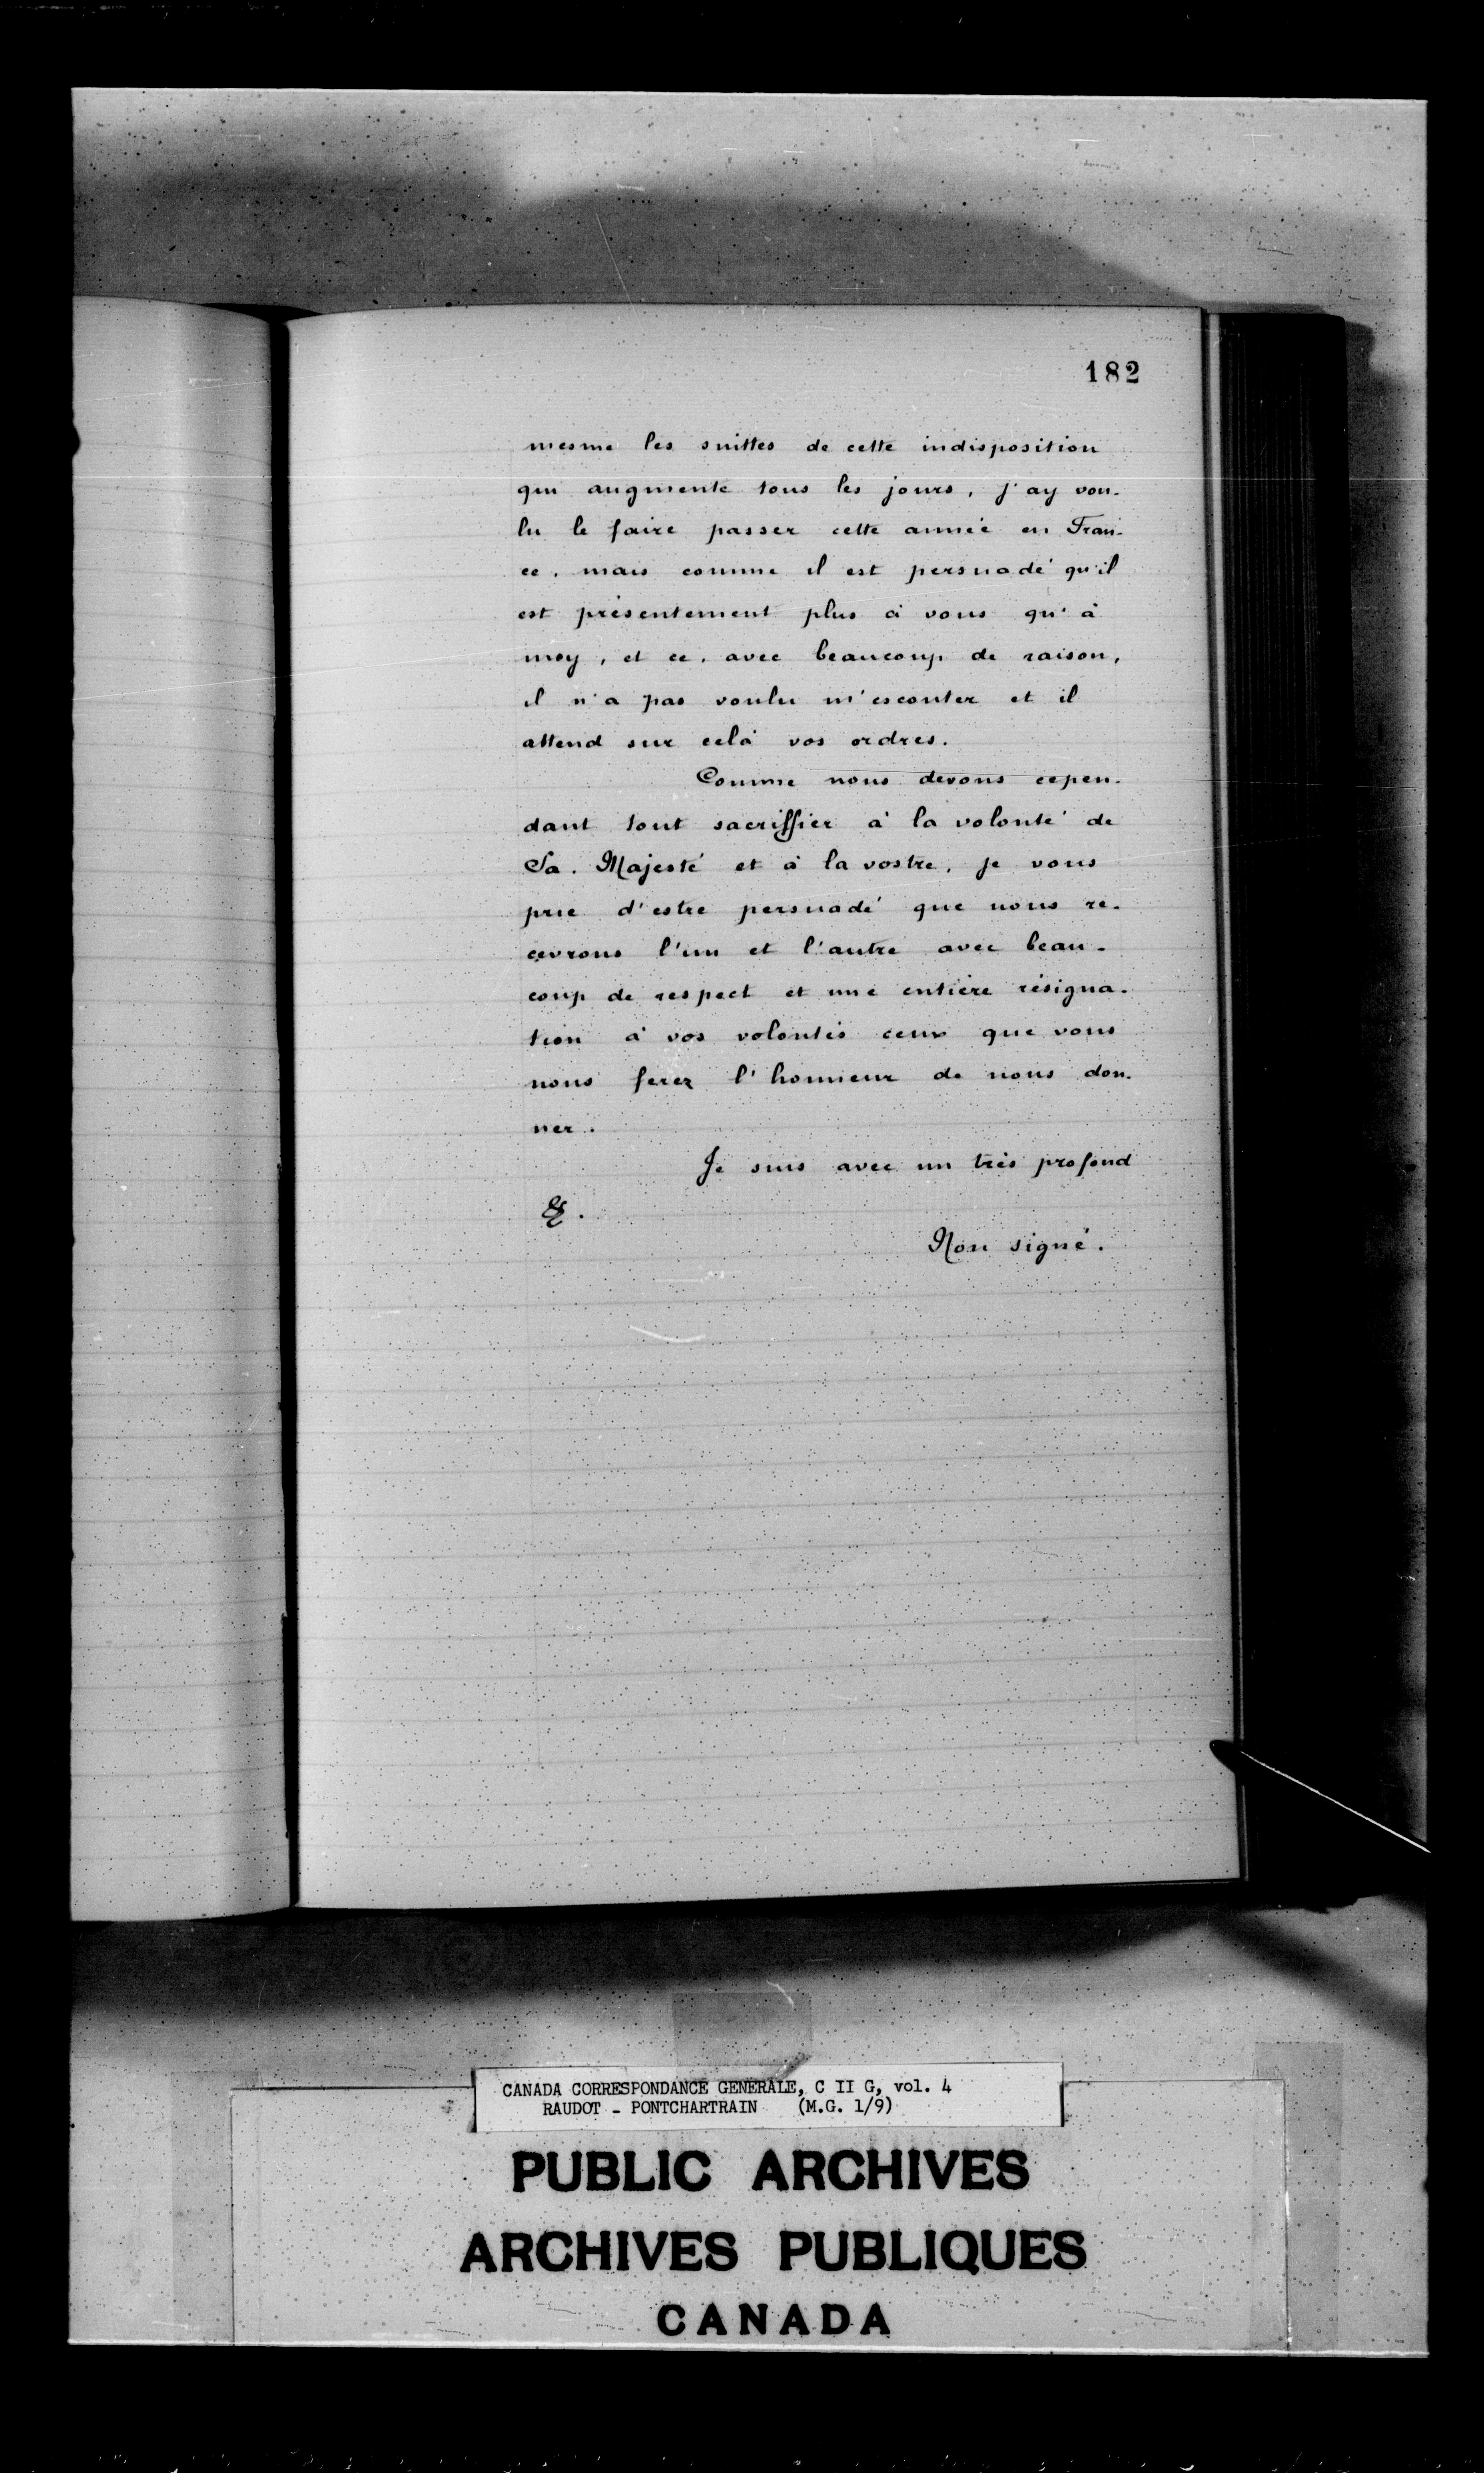 182
mesme les suittes de cette indisposition
qui augmente tous les jours, j'ay vou-
lu le faire passer cette année en Fran-
ce, mais comme il est persuadé qu'il
est présentement plus à vous qu'à
moy, et ce, avec beaucoup de raison,
il n'a pas voulu m'escouter et il
attend sur celà vos ordres.
Comme nous devons cepen-
dant tout sacriffier à la volonté de
Sa. Majesté et à la vostre, je vous
prie d'estre persuadé que nous re-
cevrons l'un et l'autre avec beau-
coup de respect et une entière résigna-
tion à vos volontés ceux que vous
nous ferez l'honneur de nous don-
ner.
Je suis avec un très profond
&.
Non signé.
CANADA CORRESPONDANCE GENERALE, C II G, vol. 4
RAUDOT - PONTCHARTRAIN (M.G. 1/9)
PUBLIC ARCHIVES
ARCHIVES PUBLIQUES
CANADA